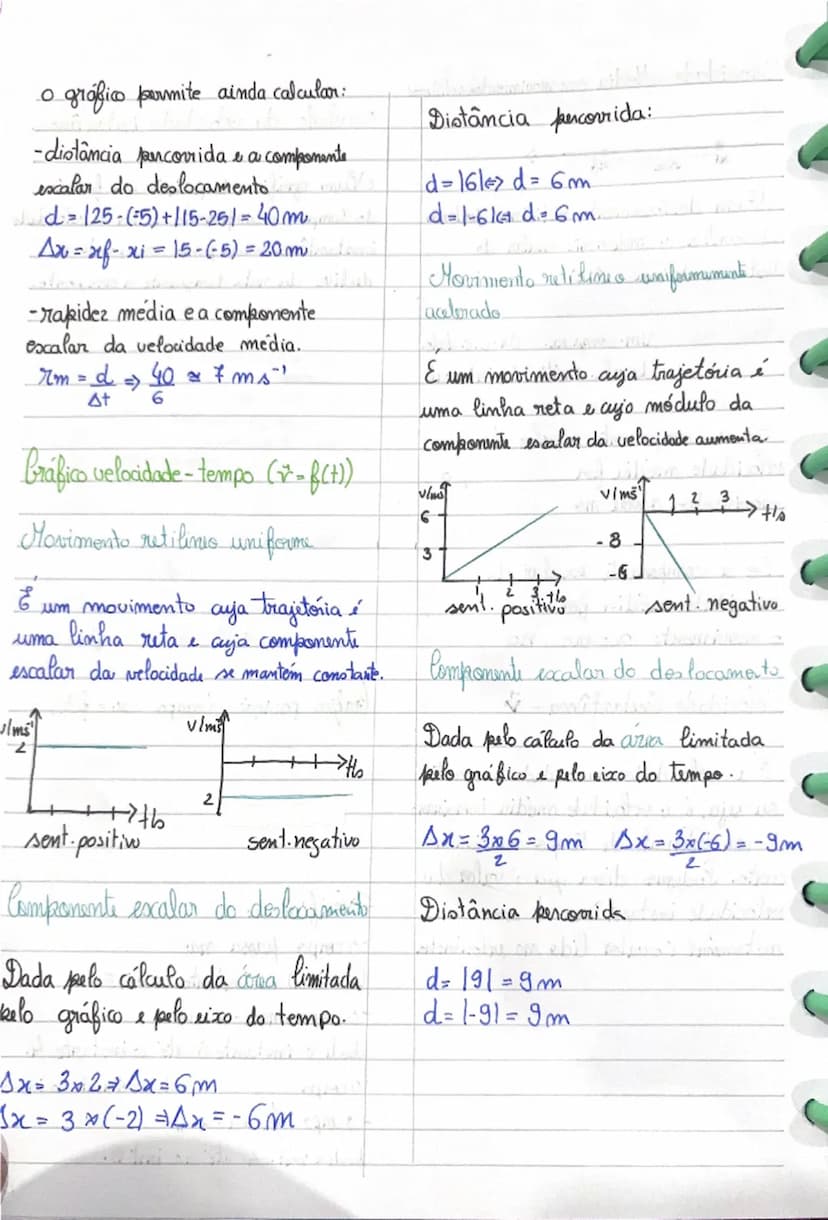 o gráfico permite ainda calcular:
-distância percorrida e a componente
escalar do deslocamento
d = |25-(-5)+|15-25| = 40m
Δx = xf - xi = 15-(-5) = 20m
-rapidez média e a componente
escalar da velocidade média.
rm = d/Δt => 40/6 ≃ 7 ms⁻¹
Gráfico velocidade-tempo (v = f(t))
Movimento retilíneo uniforme
É um movimento cuja trajetória é
uma linha reta e cuja componente
escalar da velocidade se mantém constante.
v/ms⁻¹
2
t/s
sent. positivo
v/ms⁻¹
t/s
2
sent. negativo
Componente escalar do deslocamento
Dada pelo cálculo da área limitada
pelo gráfico e pelo eixo do tempo.
Δx = 3x2 => Δx = 6m
Δx = 3 x (-2) => Δx = -6m
Distância percorrida:
d = |6| <=> d = 6m
d = |-6| <=> d = 6m
Movimento retilíneo uniformemente
acelerado
É um movimento cuja trajetória é
uma linha reta e cujo módulo da
componente escalar da velocidade aumenta.
v/ms⁻¹
6
3
1 2 3 t/s
sent. positivo
v/ms⁻¹
1 2 3
t/s
-3
-6
sent. negativo
Componente escalar do deslocamento
Dada pelo cálculo da área limitada
pelo gráfico e pelo eixo do tempo.
Δx = 3x6/2 = 9m Δx = 3x(-6)/2 = -9m
Distância percorrida
d = |9| = 9m
d = |-9| = 9m